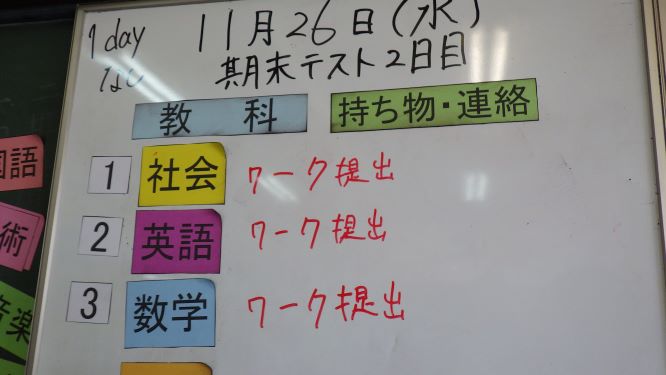 1day
なし
11月26日(水)
期末テスト2日目
教 科
持ち物・連絡
1 社会 ワーク提出
2 英語 ワーク提出
3 数学 ワーク提出
国語
術
音楽